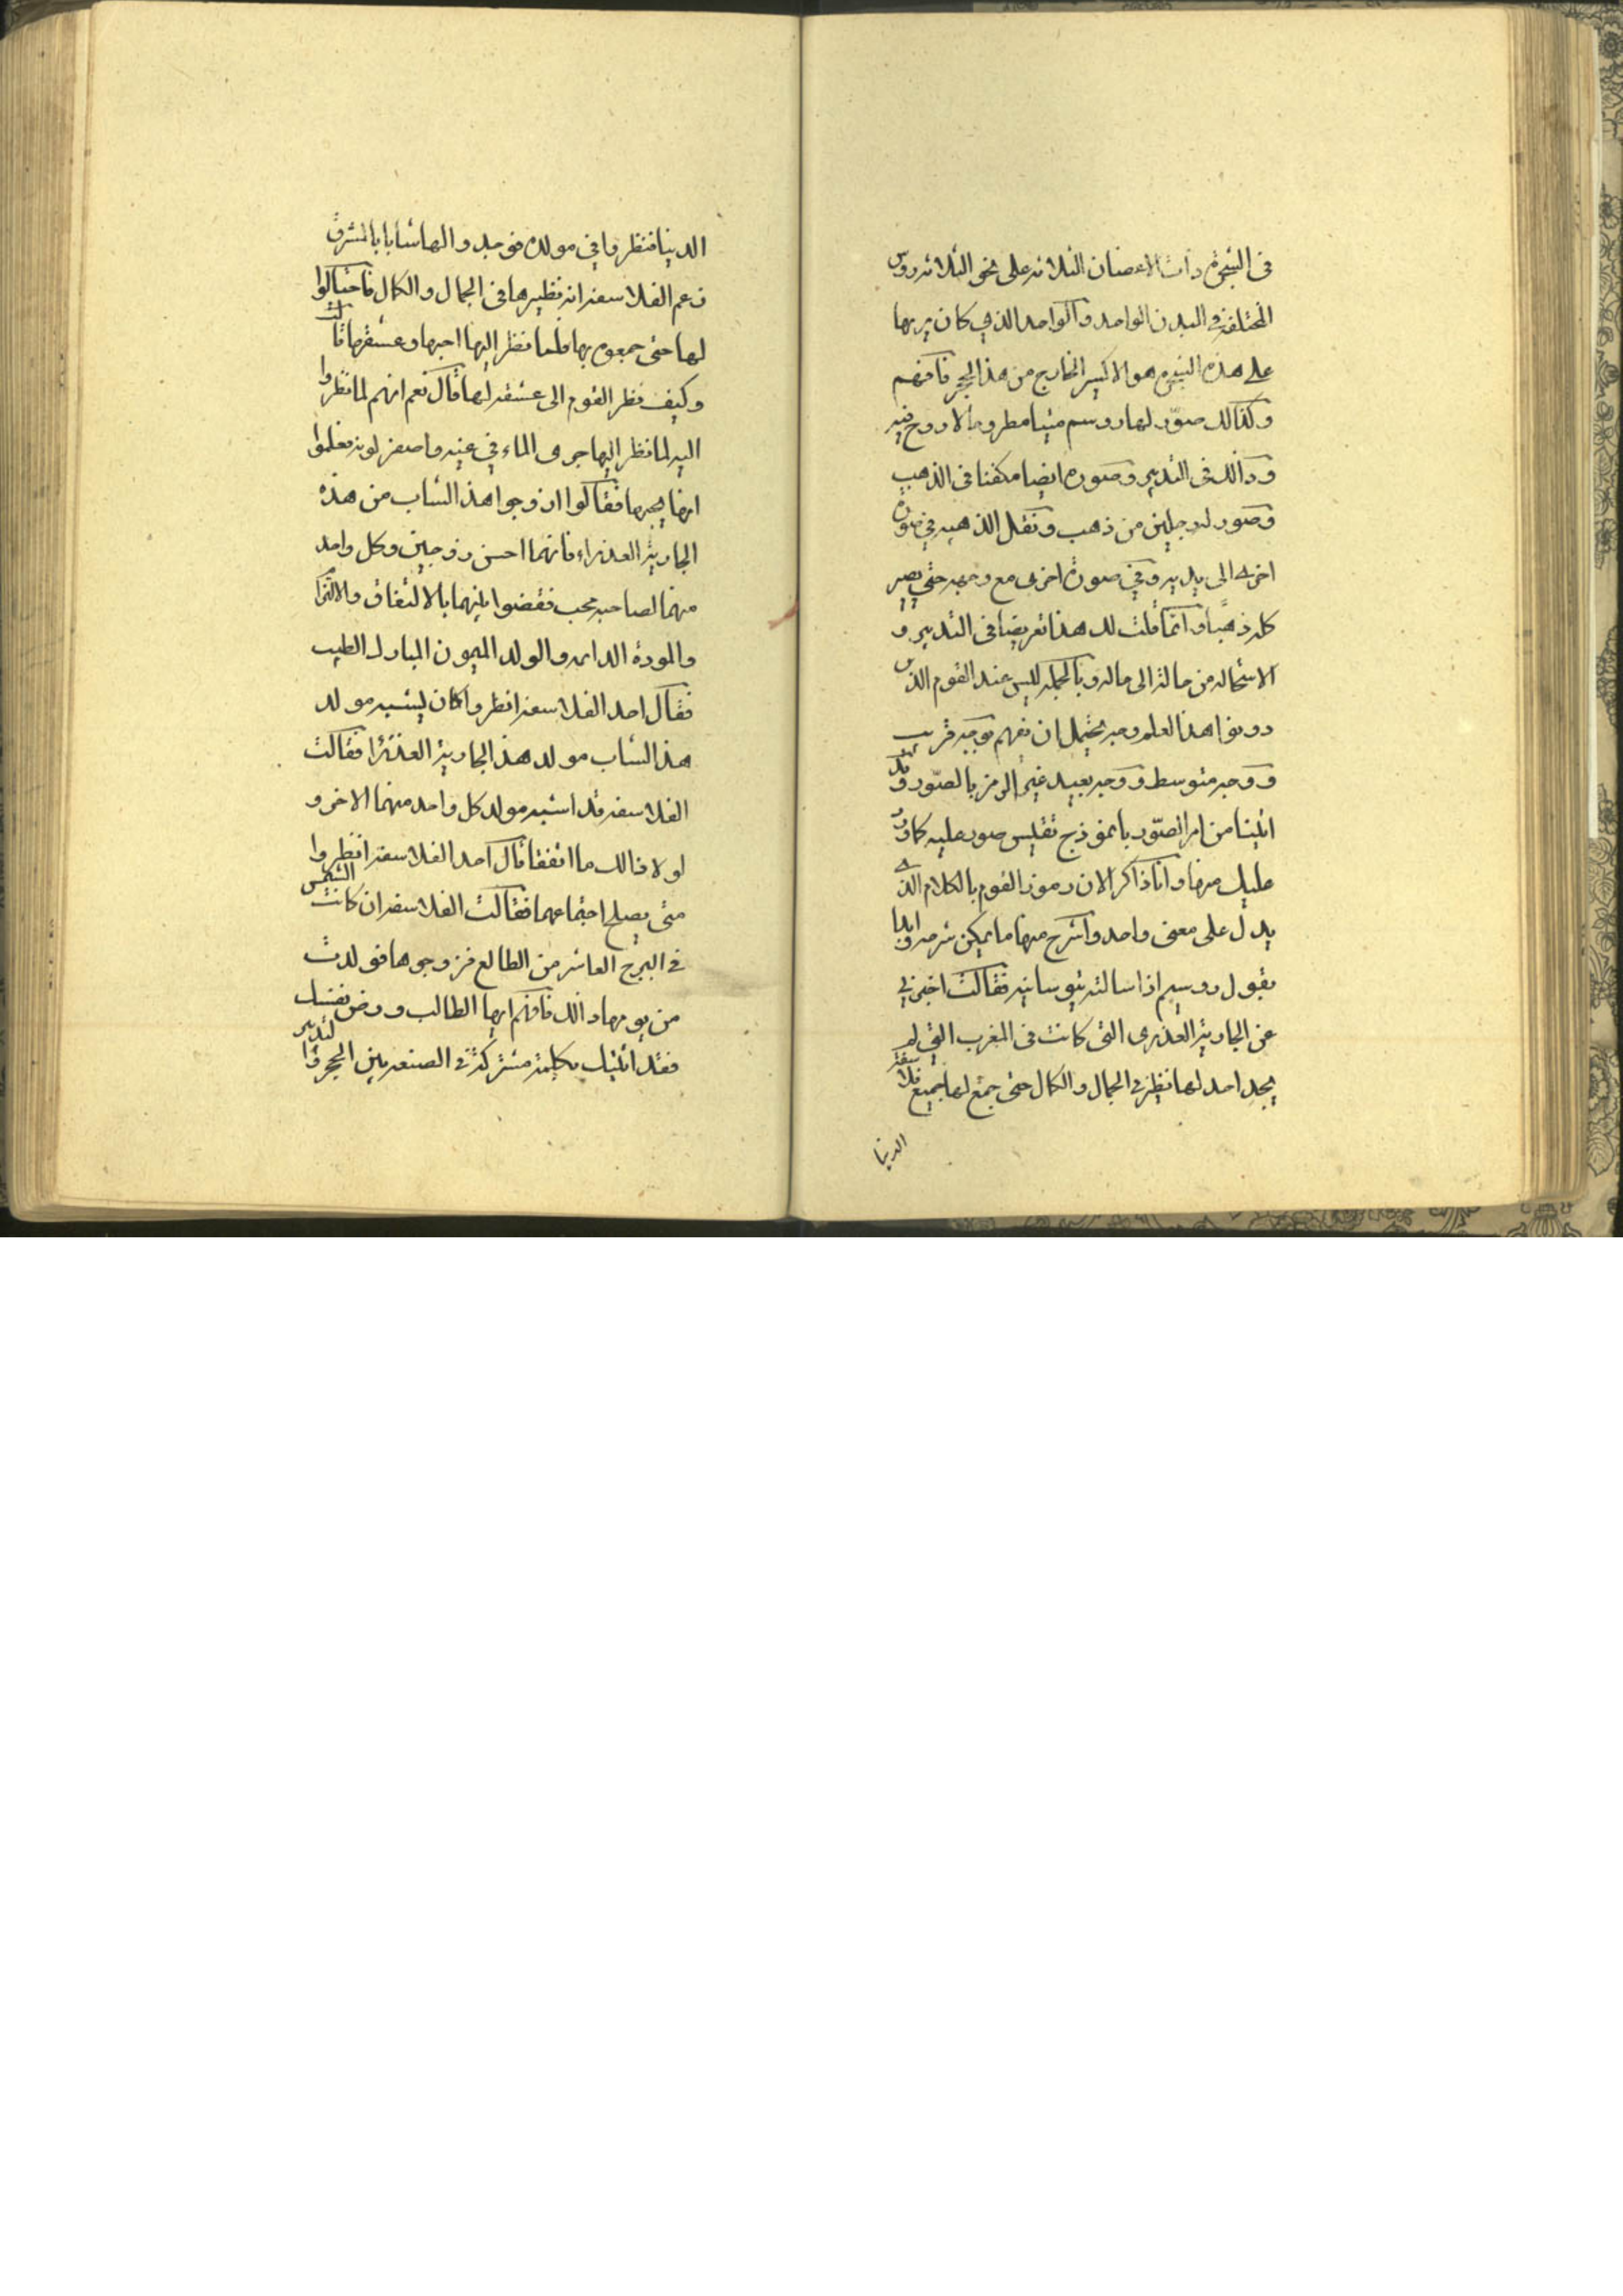 فى الشجرة ذات الاغصان الثلاثه على نحو الثلاثه روس
المختلفة فى البدن الواحد والواحد الذى كان يربها
على هذه الشجره هو الاكسير الخارج من هذا الحجر فافهم
وكذالك صوّر لها روسم ميتا مطروحا لا روح فيه
وذالك فى التدبير وصوره ايضا مكفنا فى الذهب
وصور له رجلين من ذهب ونقل الذهبيه فى صورة
اخرى الى يديه وفى صورة اخرى مع وجهه حتى يصير
كله ذهبا وانما قلت لك هذا تعريضا فى التدبير و
الاستحاله من حالة الى حاله وبالجمله ليس عند القوم الذين
دونوا هذا العلم وجه يحتمل ان تفهم بوجه قريب
ووجه متوسط ووجه بعيد غير الرمز بالصّور وقد
اتينا من امر الصّور بانموذج تقيس صور عليه كما ورد
عليك منها وانا ذاكر الان رموز القوم بالكلام الذى
يدل على معنى واحد واشرح منها ما يمكن شرحه وابدا
بقول روسم اذا سالته تيوسانيه فقالت اخبرنى
عن الجارية العذرى التى كانت فى المغرب التى لم
يجد احد لها نظير فى الجمال والكمال حتى جمع لها جميع فلاسفة
الدنيا
الدينا فنظروا فى مولده فوجدوا لها شابا بالمشرق
زعم الفلاسفة انه نظيرها فى الجمال والكمال فاحتالوا
لها حتى جمعوه بها فلما نظر اليها احبها وعشقها قالت
وكيف نظر القوم الى عشقه لها قال نعم انهم لما نظروا
اليه لما نظر اليها جرى الماء فى عينيه واصفر لونه فعلموا
انه يحبها فقالوا ازوجوا هذا الشاب من هذه
الجارية العذراء فانهما احسن زوجين وكل واحد
منهما لصاحبه محب فقضوا بينهما بالاتفاق والالتزام
والمودة الدايمه والولد الميمون المبارك الطيب
فقال احد الفلاسفة انظروا اكان يشبه مولد
هذا الشاب مولد هذه الجارية العذرا فقالت
الفلاسفه قد اشبه مولد كل واحد منهما الاخر و
لولا ذالك ما اتفقا قال احد الفلاسفة انظروا
متى يصلح اجتماعهما فقالت الفلاسفة ان كانت الشمس
فى البرج العاشر من الطالع فزوجوها فولدت
من يومها ذالك فافهم ايها الطالب وروض نفسك
فقد اتيتك بكلمة مشتركة فى الصنعة بين الحجر والتدبير